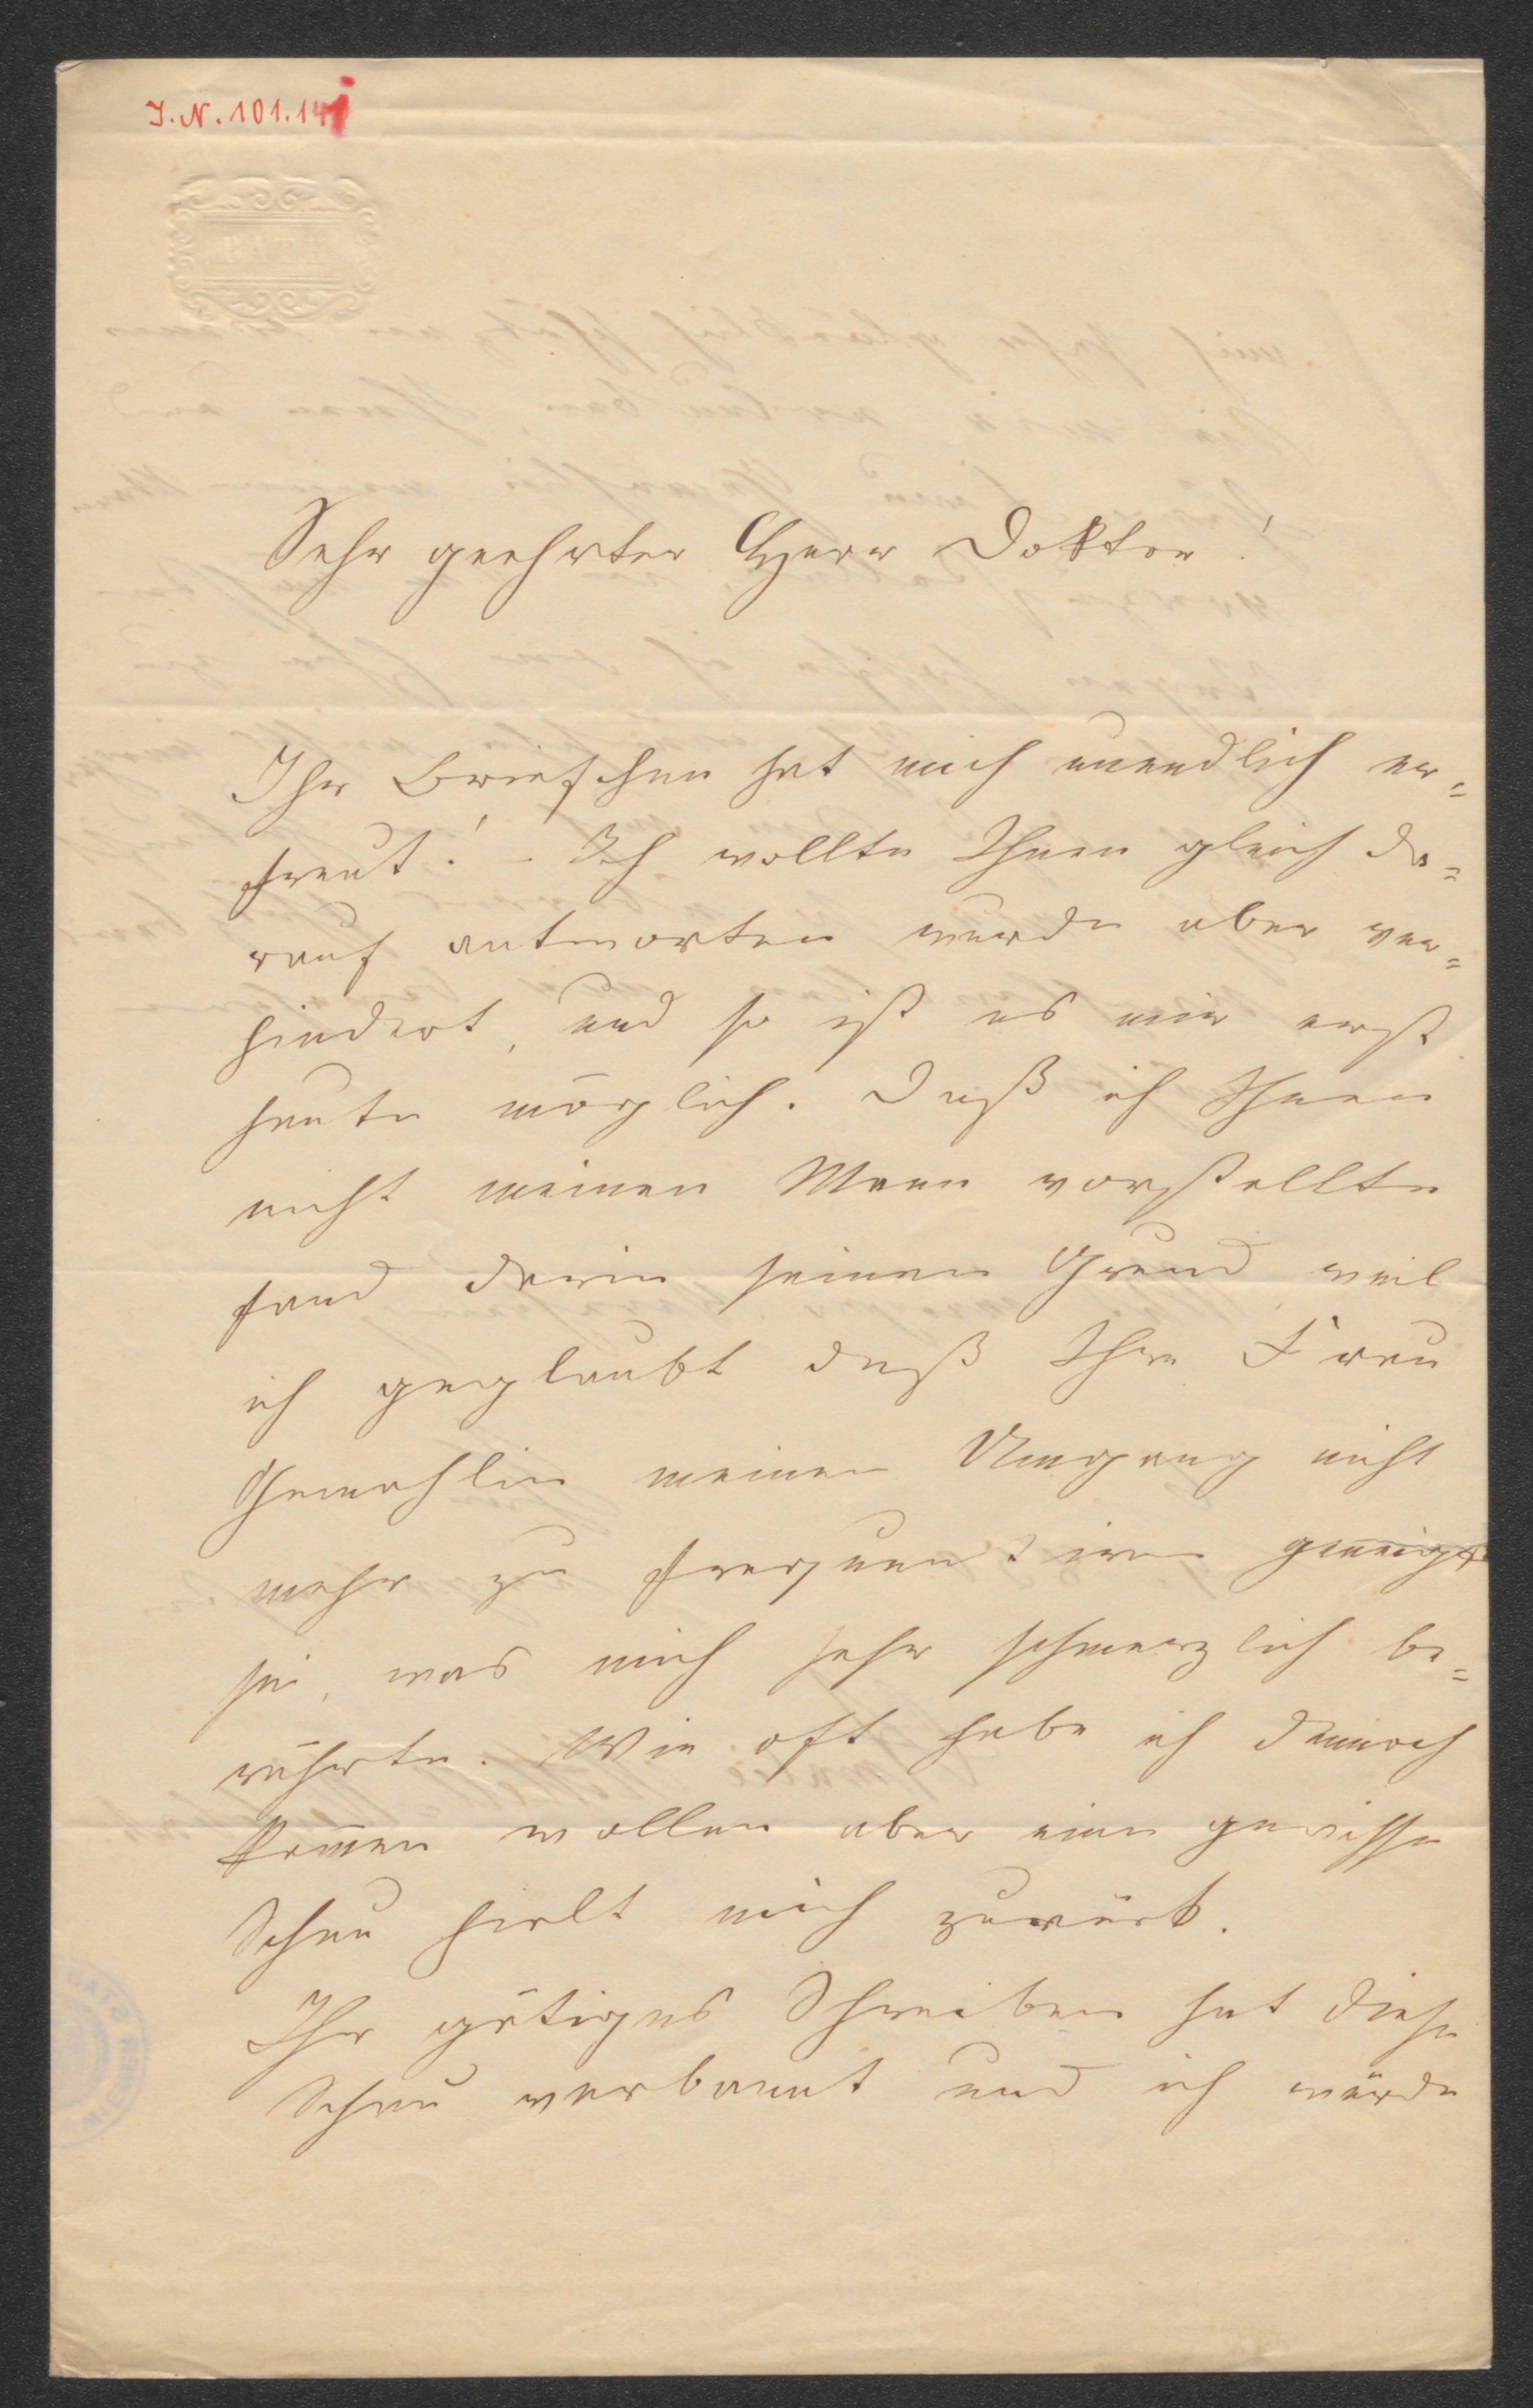 I.N. 101.14
BATH
Sehr geehrter Herr Doktor!
Ihr Briefchen hat mich unendlich er=
freut! – Ich wollte Ihnen gleich da=
rauf antworten wurde aber ver=
hindert, und so ist es mir erst
heute möglich. Daß ich Ihnen
nicht meinen Mann vorstellte
fand darin seinen Grund, weil
ich geglaubt daß Ihre Frau
Gemahlin meinen Umgang nicht
mehr zu frequentiren geneigt
sei, was mich sehr schmerzlich be=
rührte. Wie oft habe ich dennoch
kom̄en wollen aber eine gewisse
Scheu hielt mich zurück.
Ihr gütiges Schreiben hat diese
Scheu verbannt und ich würde